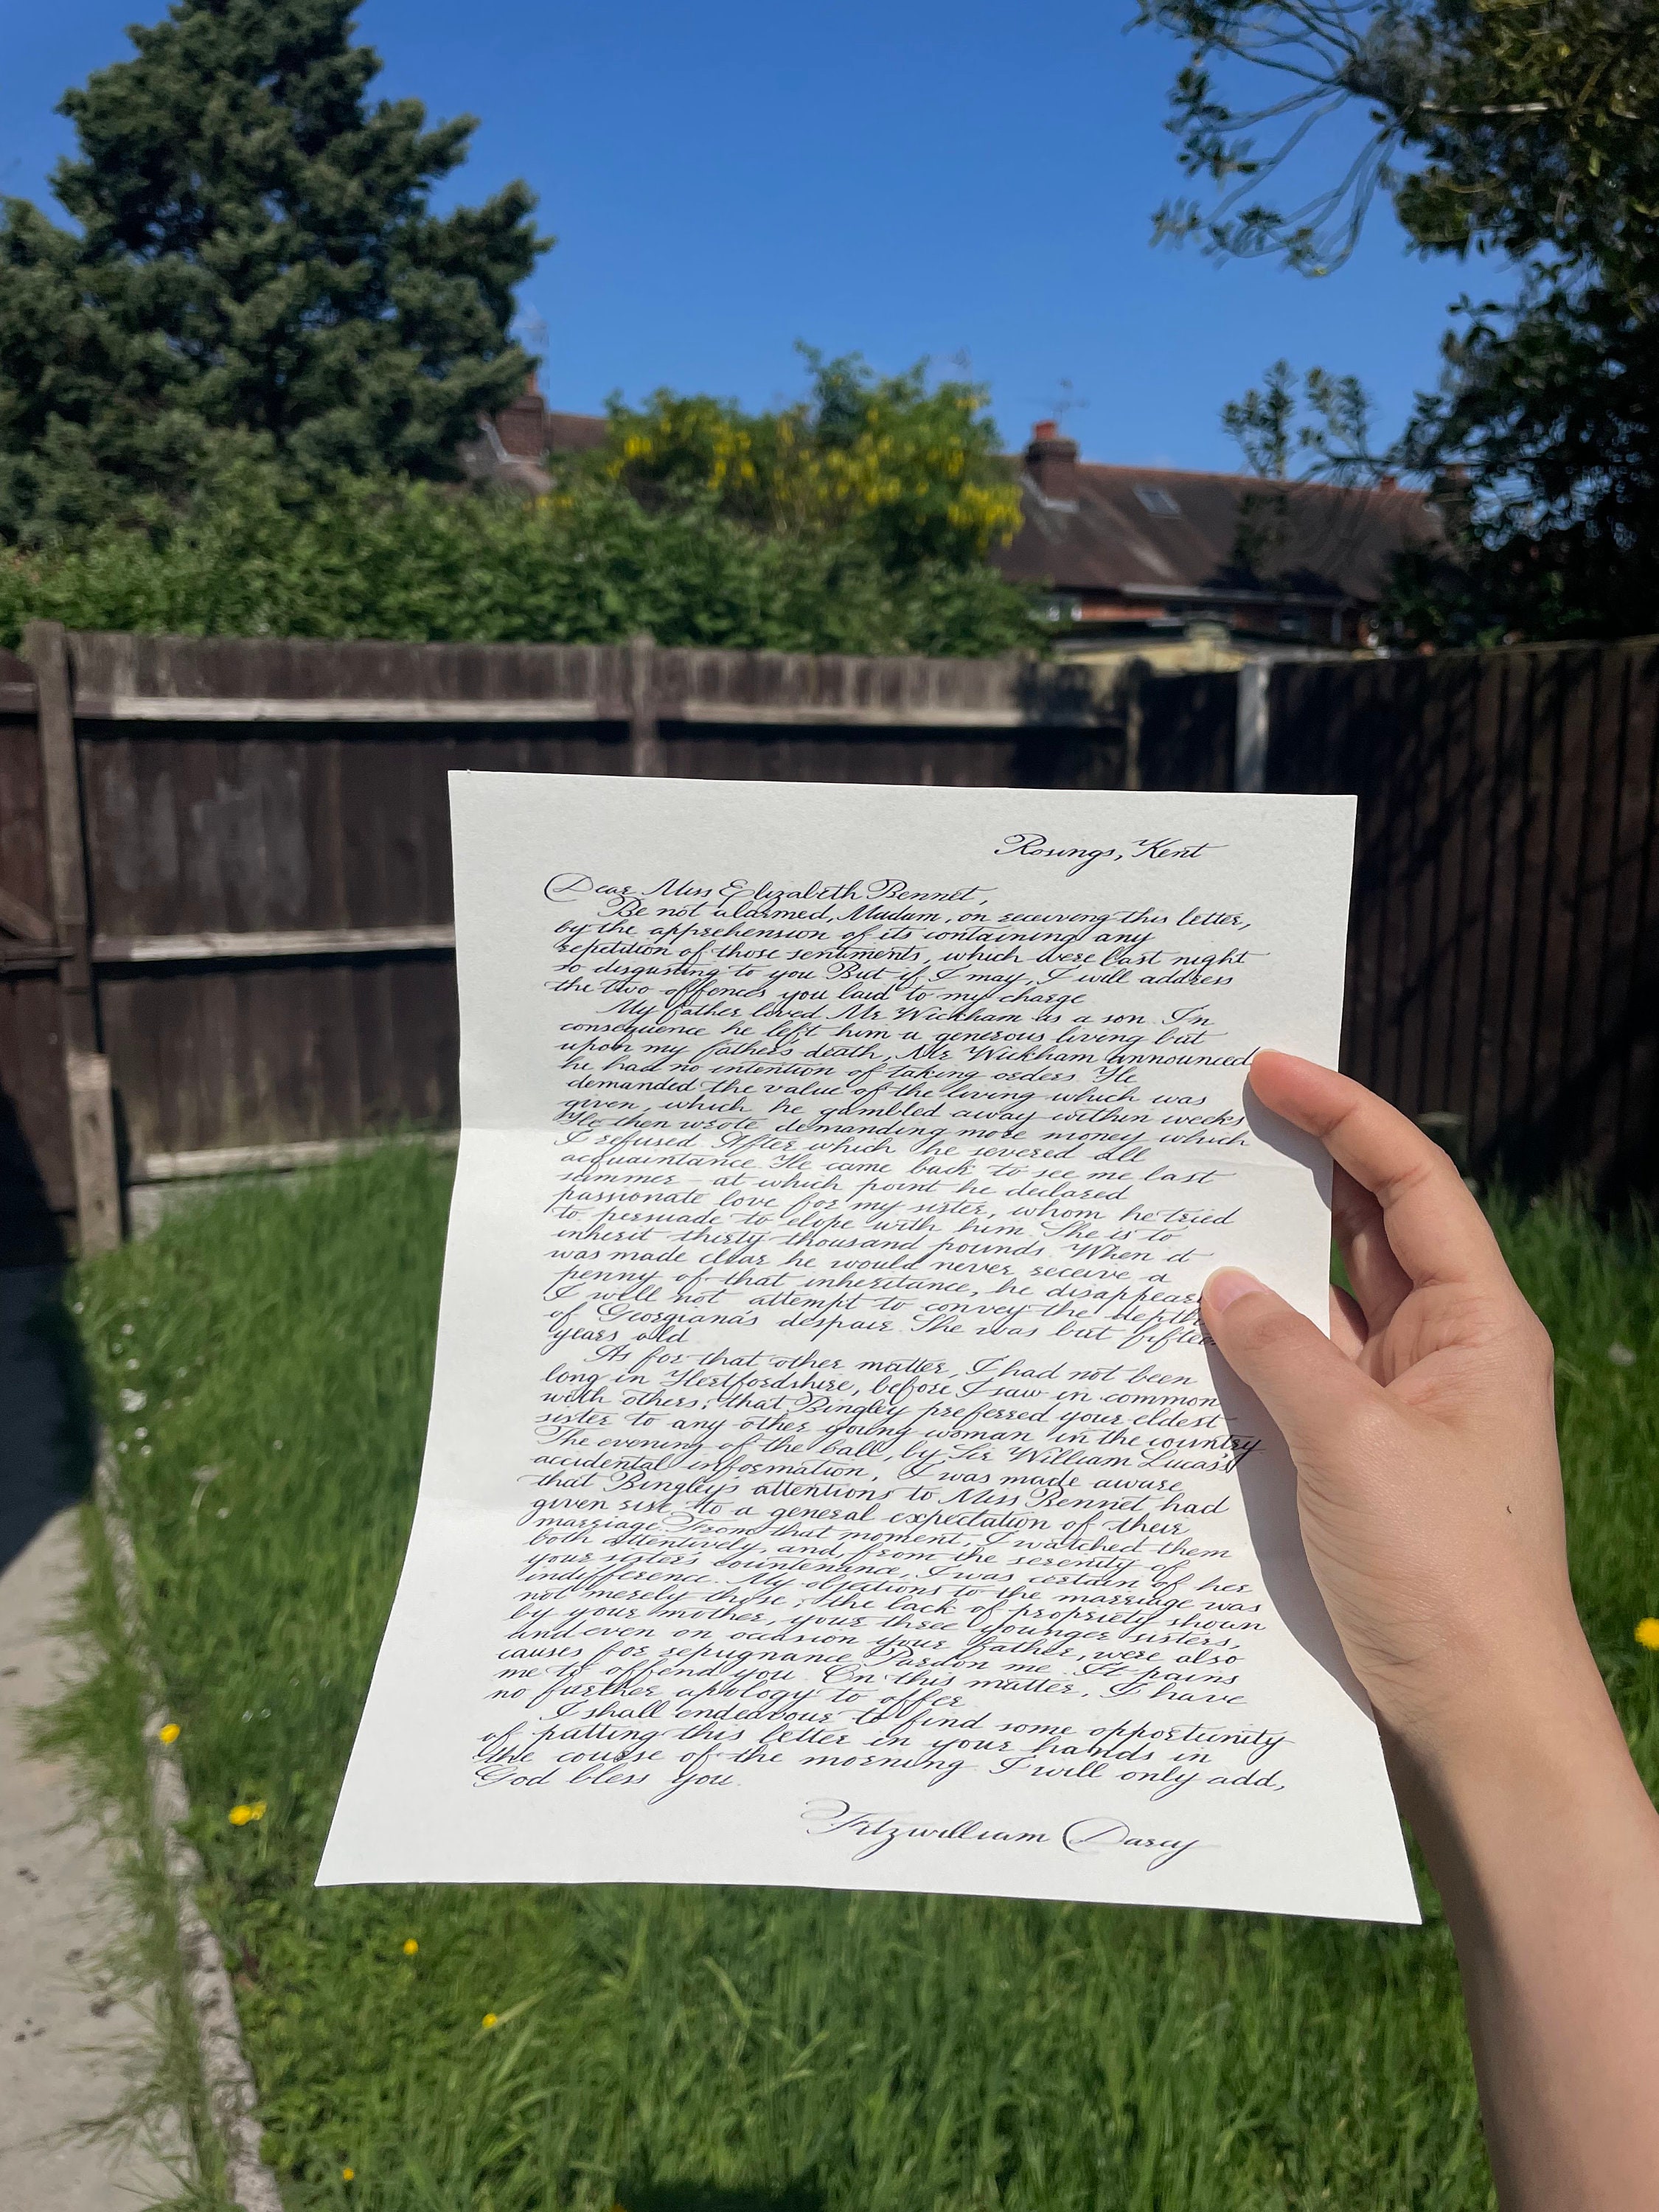 Rosings, Kent
Dear Miss Elizabeth Bennet,
Be not alarmed, Madam, on receiving this letter,
by the apprehension of its containing any
repetition of those sentiments, which were last night
so disgusting to you But if I may, I will address
the two offences you laid to my charge
My father loved Mr Wickham as a son. In
consequence he left him a generous living but
upon my father's death, Mr Wickham announced
he had no intention of taking orders. He
demanded the value of the living which was
given, which he gambled away within weeks
He then wrote demanding more money which
I refused After which he severed all
acquaintance. He came back to see me last
summer – at which point he declared
passionate love for my sister, whom he tried
to persuade to elope with him. She is to
inherit thirty thousand pounds. When it
was made clear he would never receive a
penny of that inheritance, he disappear
I will not attempt to convey the depth
of Georgiana's despair. She was but fiftee
years old
As for that other matter, I had not been
long in Hertfordshire, before I saw in common
with others, that Bingley preferred your eldest
sister to any other young woman in the country
The evening of the ball, by Sir William Lucas's
accidental information, I was made aware
that Bingley's attentions to Miss Bennet had
given rise to a general expectation of their
marriage. From that moment, I watched them
both attentively, and, from the serenity of
your sister's countenance, I was certain of her
indifference. My objections to the marriage was
not merely those; the lack of propriety shown
by your mother, your three younger sisters,
and even on occasion your father, were also
causes for repugnance Pardon me. It pains
me to offend you. On this matter, I have
no further apology to offer
I shall endeavour to find some opportunity
of putting this letter in your hands in
the course of the morning I will only add,
God bless you.
Fitzwilliam Darcy